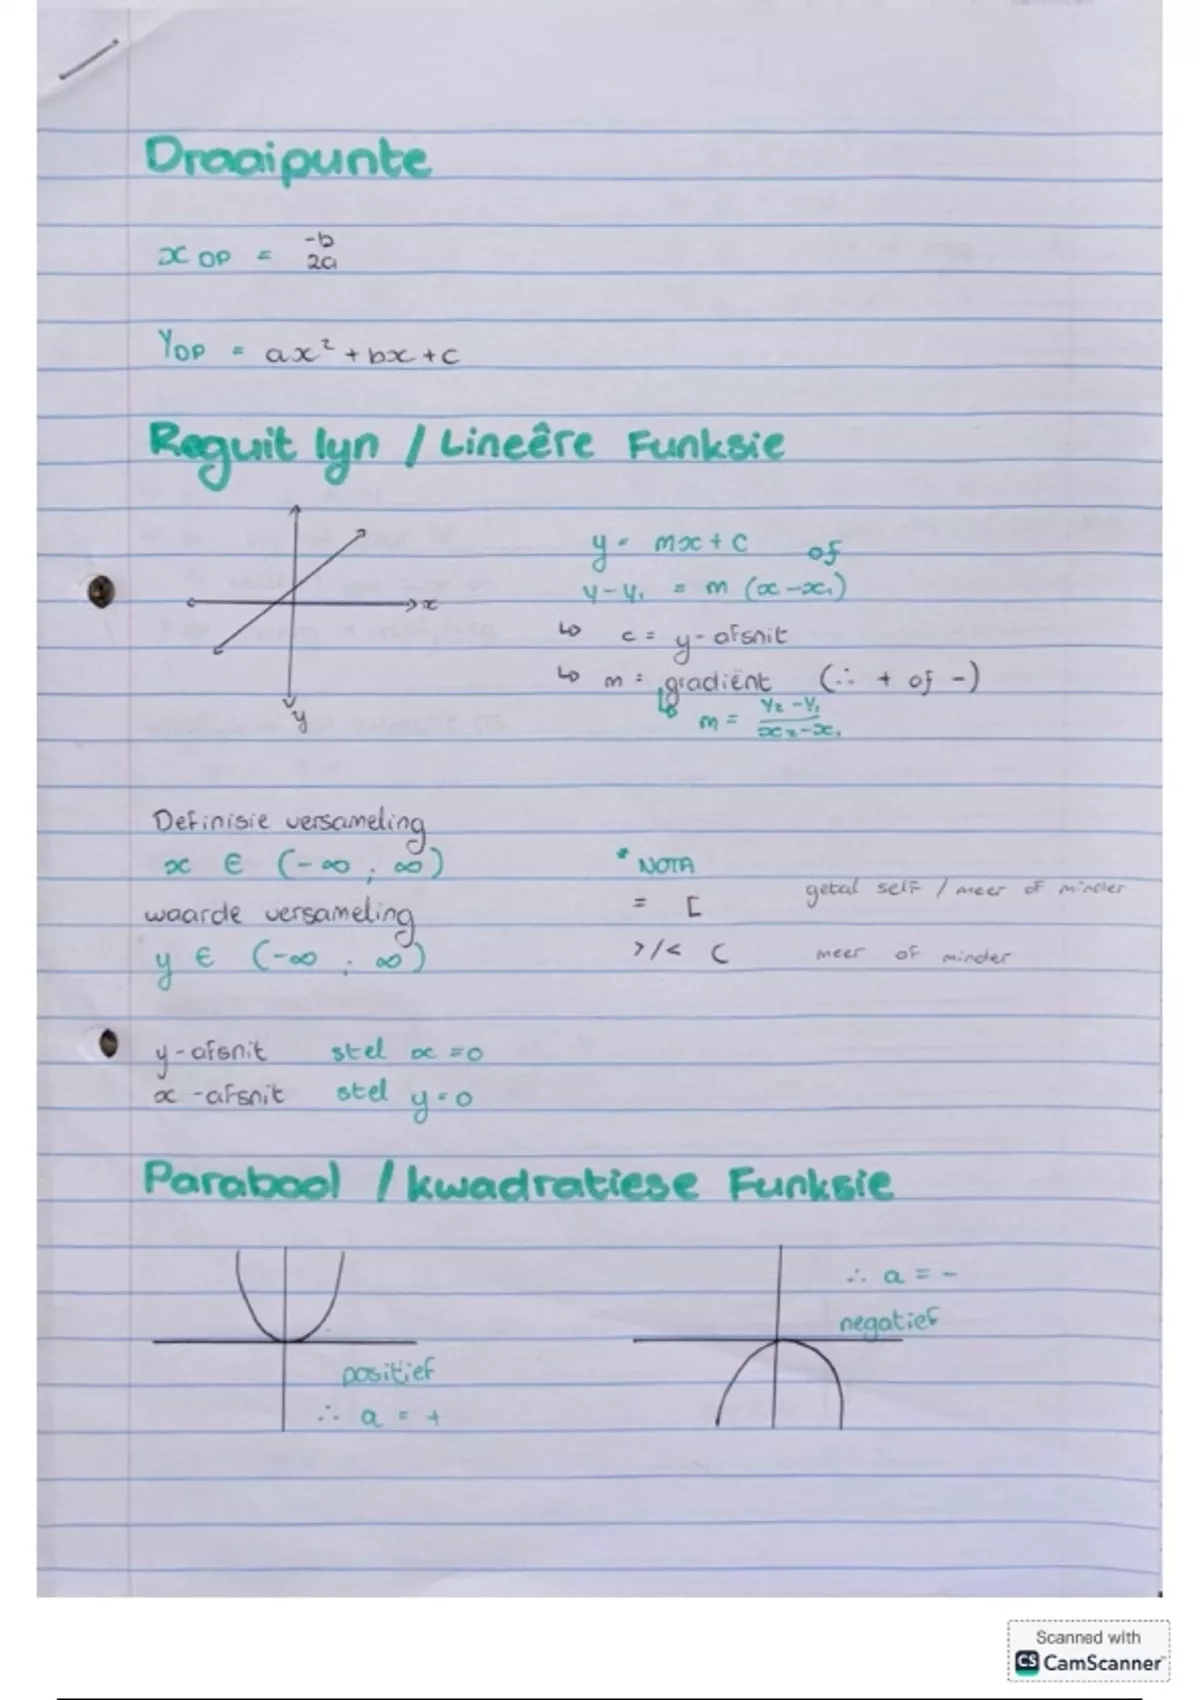 Draaipunte
x DP = -b
2a
YDP = ax² + bx + c
Reguit lyn / Lineêre Funksie
y = mx + c of
y - y₁ = m (x - x₁)
x
↳ c = y-afsnit
↳ m = gradiënt (∴ + of -)
y
↳ m = y₂ - y₁
x₂ - x₁
Definisie versameling
x ∈ (-∞ ; ∞)
* NOTA
waarde versameling
= [ getal self / meer of minder
y ∈ (-∞ ; ∞)
>/< ( meer of minder
y-afsnit stel x = 0
x-afsnit stel y = 0
Parabool / kwadratiese Funksie
∴ a = -
negatief
positief
∴ a = +
Scanned with
CS CamScanner